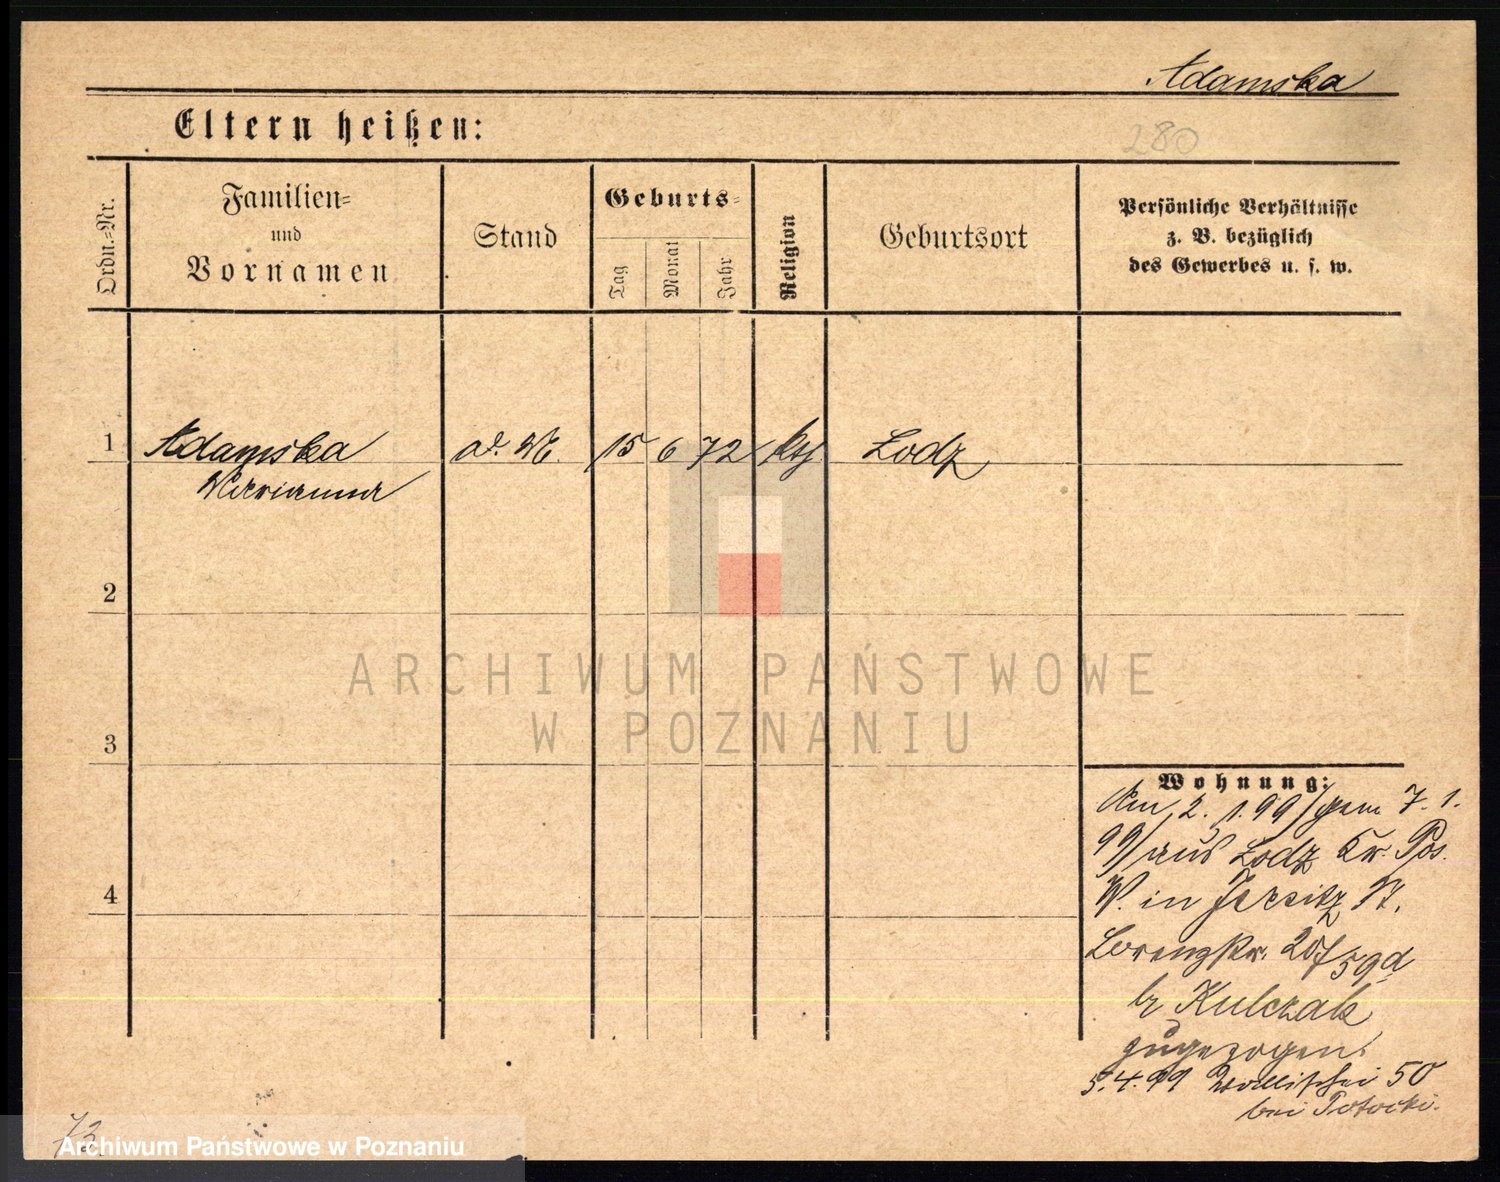 Adamska
Eltern heißen:
280
Ordn.=Nr.
Familien=
und
Vornamen
Stand
Geburts=
Tag
Monat
Jahr
Religion
Geburtsort
Persönliche Verhältnisse
z. B. bezüglich
des Gewerbes u. s. w.
1
Adamska
Marianna
15
6
72
kth
Lodz
2
3
4
ARCHIWUM PAŃSTWOWE
W POZNANIU
Wohnung:
Am 2. 1. 99/gem 7. 1.
99/aus Lodz Kr. Pos.
W. in Jersitz
20/59d
b Kulczak
zugezogen.
5.4.99 Wallischei 50
bei Potocki.
73
Archiwum Państwowe w Poznaniu